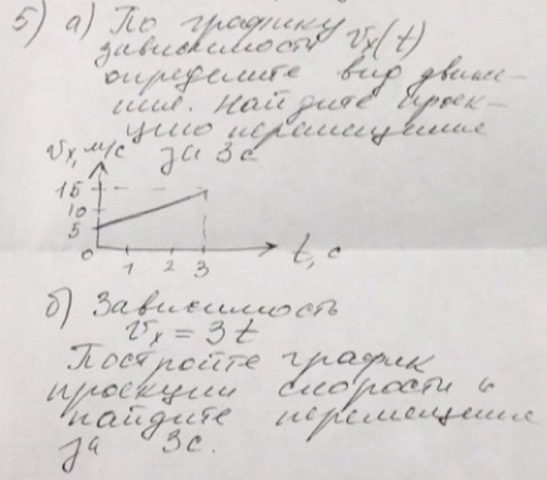 5) а) По графику
зависимости vx(t)
определите вид движе-
ния. Найдите проек-
цию перемещение
за 3с
vx, м/с
15
10
5
0 1 2 3 t, c
б) Зависимость
vx = 3t
Постройте график
проекции скорости и
найдите перемещение
за 3с.